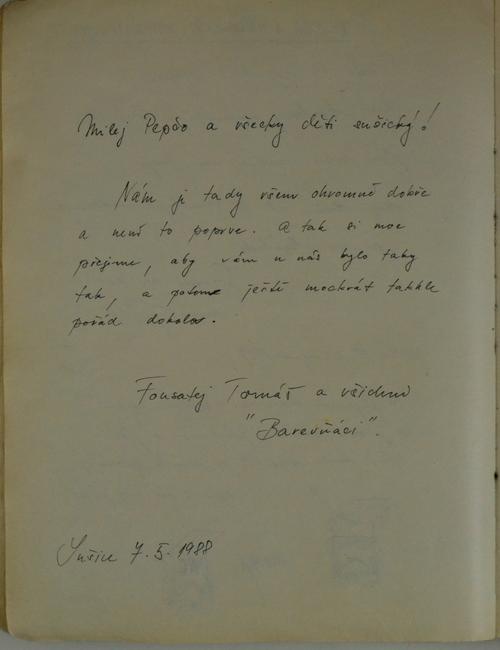 Milej Pepóo a všecky děti sušický!
Nám je tady všem ohromně dobře
a není to poprve. A tak si moc
přejime, aby vám u nás bylo taky
tak, a potom ještě mockrát takhle
pořád dokola.
Fousatej Tomáš a všichni
"Barevňáci".
Sušice 7.5.1988